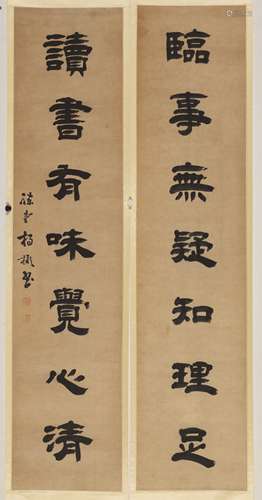 臨事無疑知理足
讀書有味覺心清